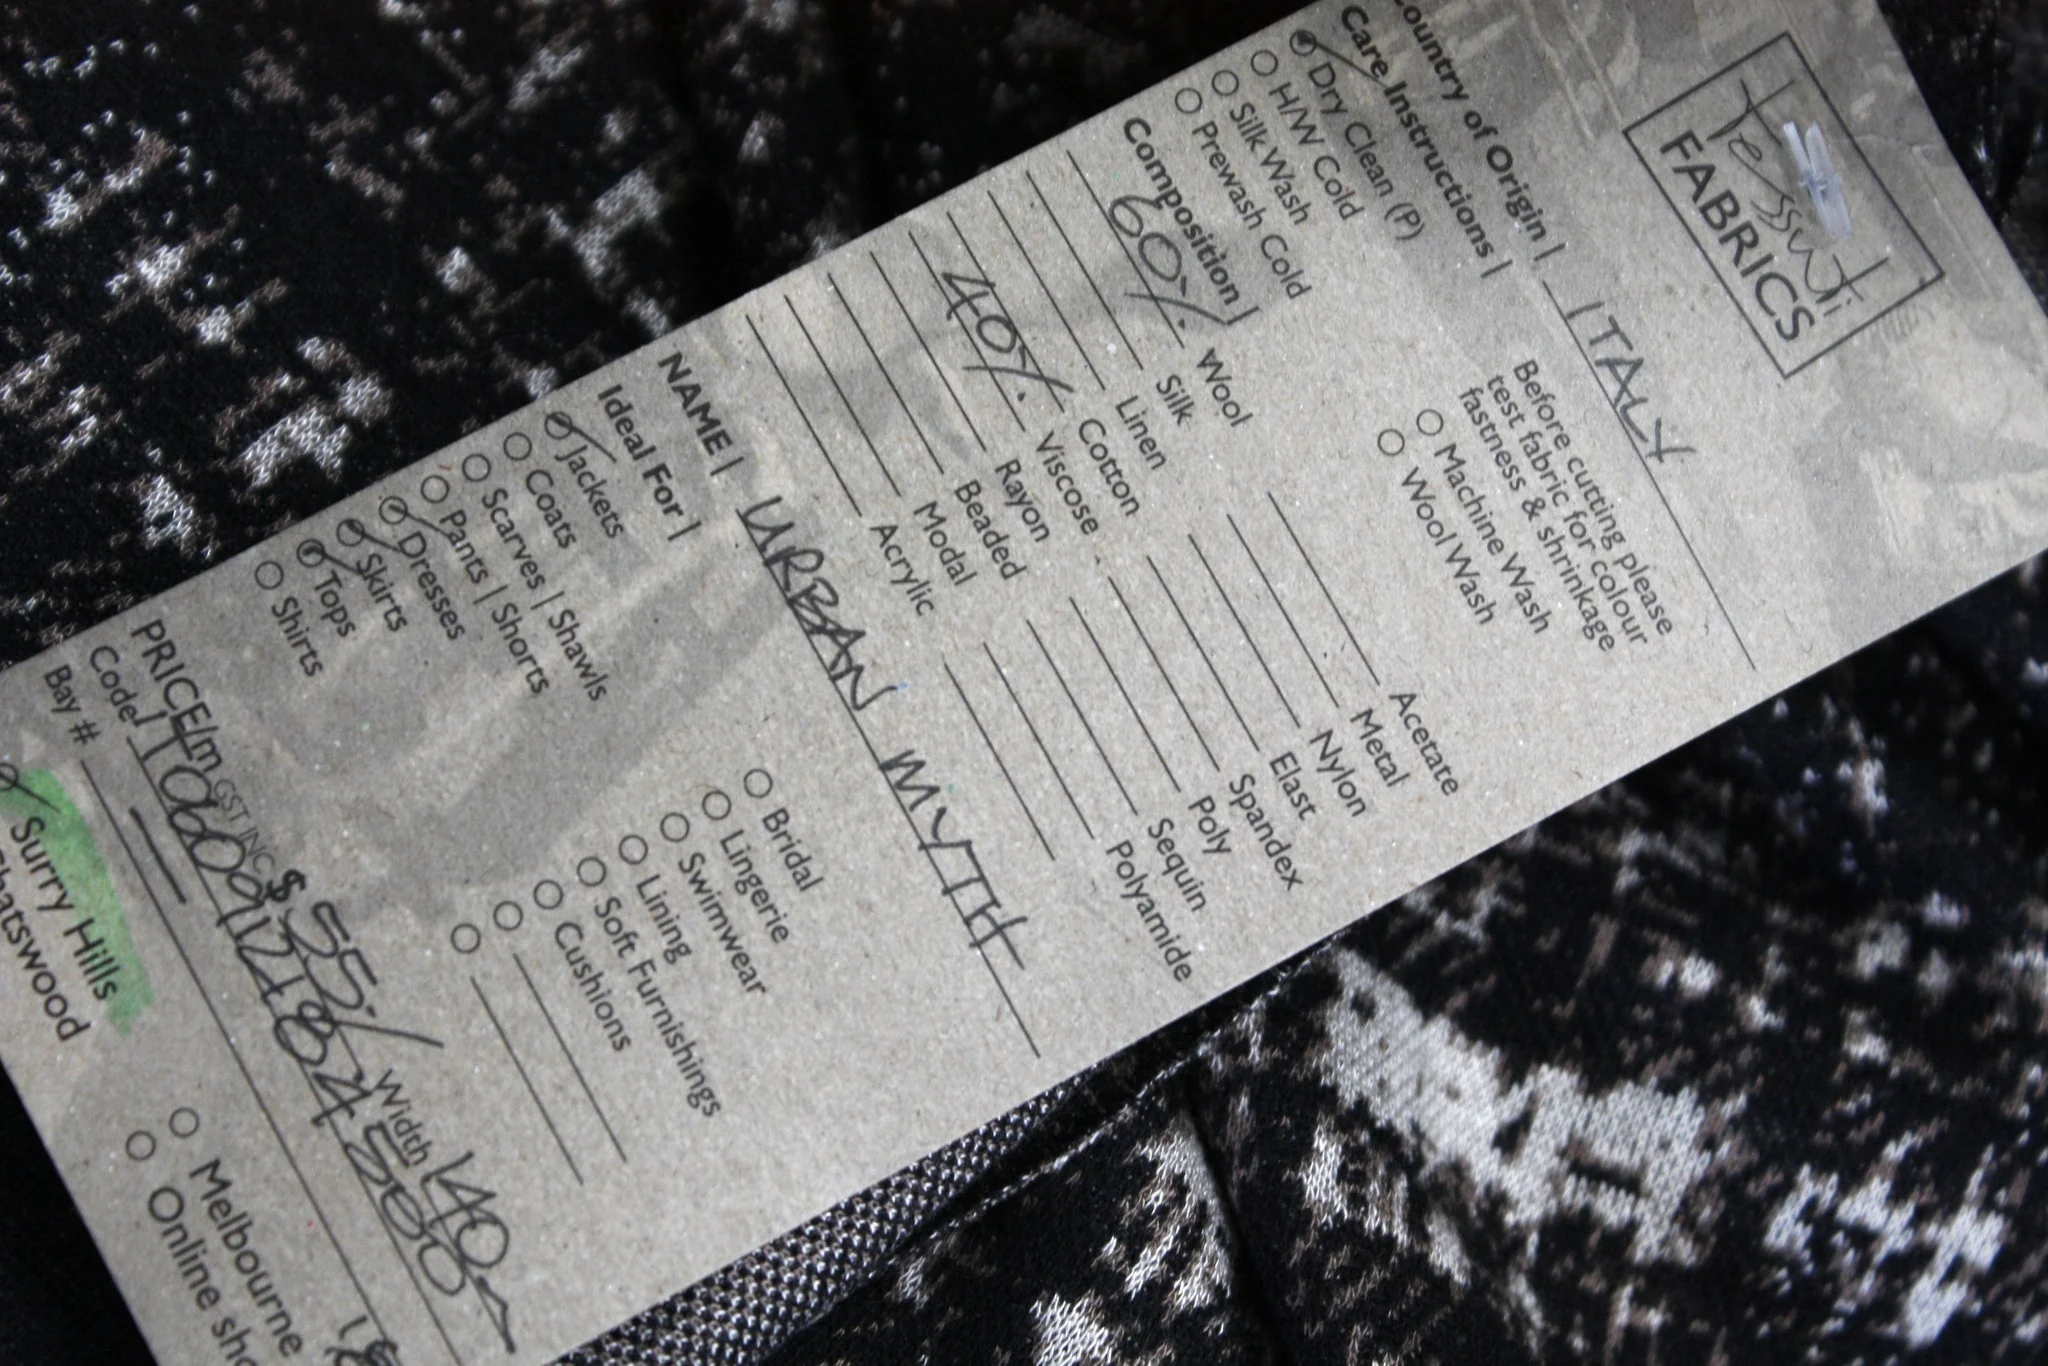 Tessuti
FABRICS
Country of Origin | ITALY
Care Instructions |
Dry Clean (P)
H/W Cold
Silk Wash
Prewash Cold
Before cutting please
test fabric for colour
fastness & shrinkage
Machine Wash
Wool Wash
Composition |
60% Wool
Silk
Linen
Cotton
40% Viscose
Rayon
Beaded
Modal
Acrylic
Acetate
Metal
Nylon
Elast
Spandex
Poly
Sequin
Polyamide
NAME | URBAN MYTH
Ideal For |
Jackets
Coats
Scarves | Shawls
Pants | Shorts
Dresses
Skirts
Tops
Shirts
Bridal
Lingerie
Swimwear
Lining
Soft Furnishings
Cushions
PRICE/m GST INC $55 Width 140
Code
Bay #
Surry Hills
Chatswood
Melbourne
Online